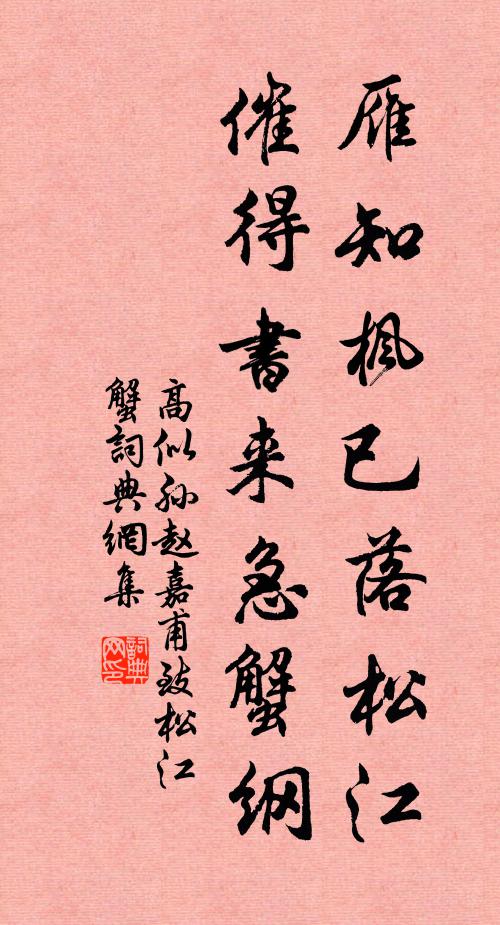 雁知枫已落松江
催得書来急蟹纲
高似孙赵嘉甫致松江
蟹詞典網集
詞典网印